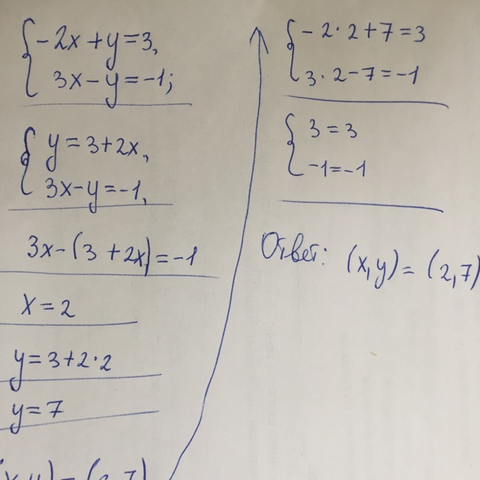 {-2x+y=3,
3x-y=-1;
{y=3+2x,
3x-y=-1,
3x-(3+2x)=-1
x=2
y=3+2·2
y=7
{-2·2+7=3
3·2-7=-1
{3=3
-1=-1
Ответ: (x,y)=(2,7)